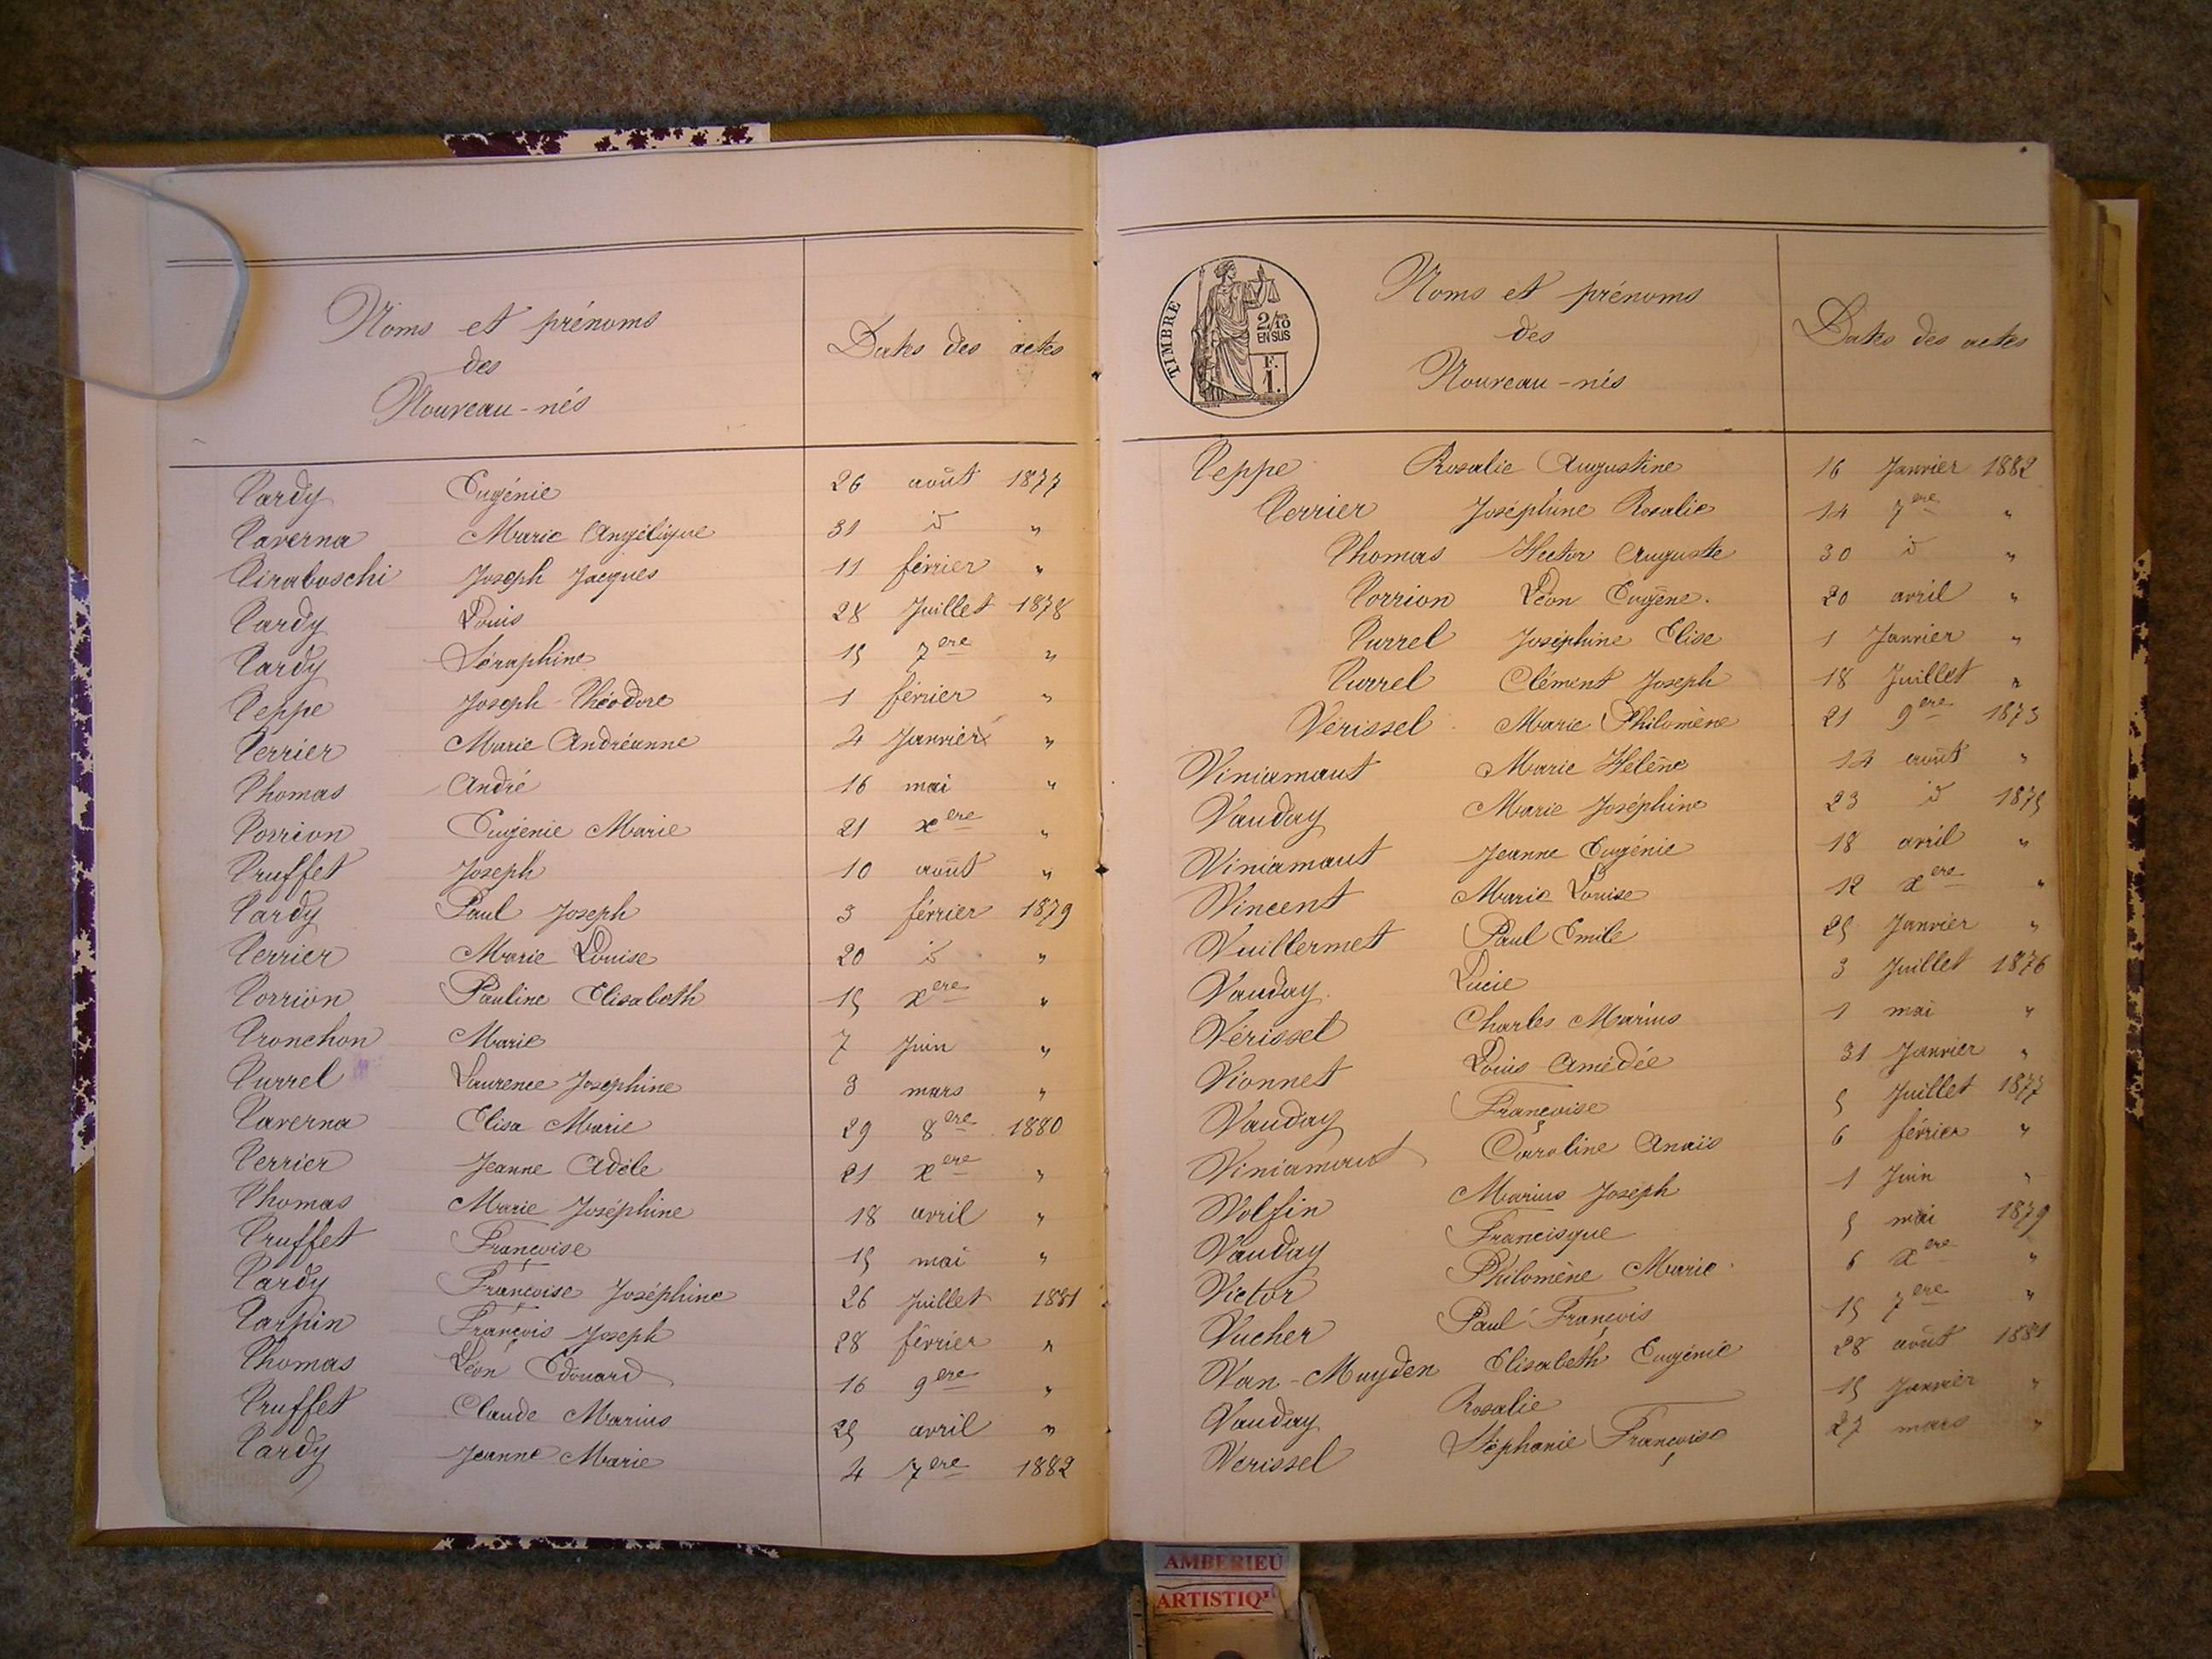 Noms et prénoms
des
Nouveau-nés
Dates des actes
Tardy Eugénie 26 août 1877
Taverna Marie Angélique 31 id "
Tiraboschi Joseph Jacques 11 février "
Tardy Louis 28 Juillet 1878
Tardy Séraphine 15 7ere "
Teppe Joseph-Théodore 1 février "
Terrier Marie Andréanne 4 Janvier "
Thomas André 16 mai "
Torrion Eugénie Marie 21 xere "
Truffet Joseph 10 août "
Tardy Paul Joseph 3 février 1879
Terrier Marie Louise 20 id "
Torrion Pauline Elisabeth 15 xere "
Tronchon Marie 7 Juin "
Turrel Laurence Joséphine 3 mars "
Taverna Elisa Marie 29 8ere 1880
Terrier Jeanne Adèle 21 xere "
Thomas Marie Joséphine 18 avril "
Truffet Françoise 15 mai "
Tardy Françoise Joséphine 26 Juillet 1881
Tarpin François Joseph 28 février "
Thomas Léon Edouard 16 9ere "
Truffet Claude Marius 25 avril "
Tardy Jeanne Marie 4 7ere 1882
TIMBRE
2/10
EN SUS
F.
1.
Noms et prénoms
des
Nouveau-nés
Dates des actes
Teppe Rosalie Augustine 16 Janvier 1882
Terrier Joséphine Rosalie 14 7ere "
Thomas Hector Auguste 30 id "
Torrion Léon Eugène. 20 avril "
Turrel Joséphine Elise 1 Janvier "
Turrel Clément Joseph 18 Juillet "
Vérissel Marie Philomène 21 9ere 1873
Viniamaut Marie Hélène 14 août "
Vauday Marie Joséphine 23 id 1875
Viniamaut Jeanne Eugénie 18 avril "
Vincent Marie Louise 12 xere "
Vuillermet Paul Emile 25 Janvier "
Vauday Lucie 3 Juillet 1876
Vérissel Charles Marius 1 mai "
Vionnet Louis Amédée 31 Janvier "
Vauday Françoise 5 Juillet 1877
Viniamaut Caroline Anaïs 6 février "
Volfin Marius Joseph 1 Juin "
Vauday Francisque 5 mai 1879
Victor Philomène Marie 6 xere "
Vucher Paul François 15 7ere "
Van-Muyden Elisabeth Eugénie 28 août 1881
Vauday Rosalie 15 Janvier "
Verissel Stéphanie Françoise 27 mars "
AMBERIEU
ARTISTIQ